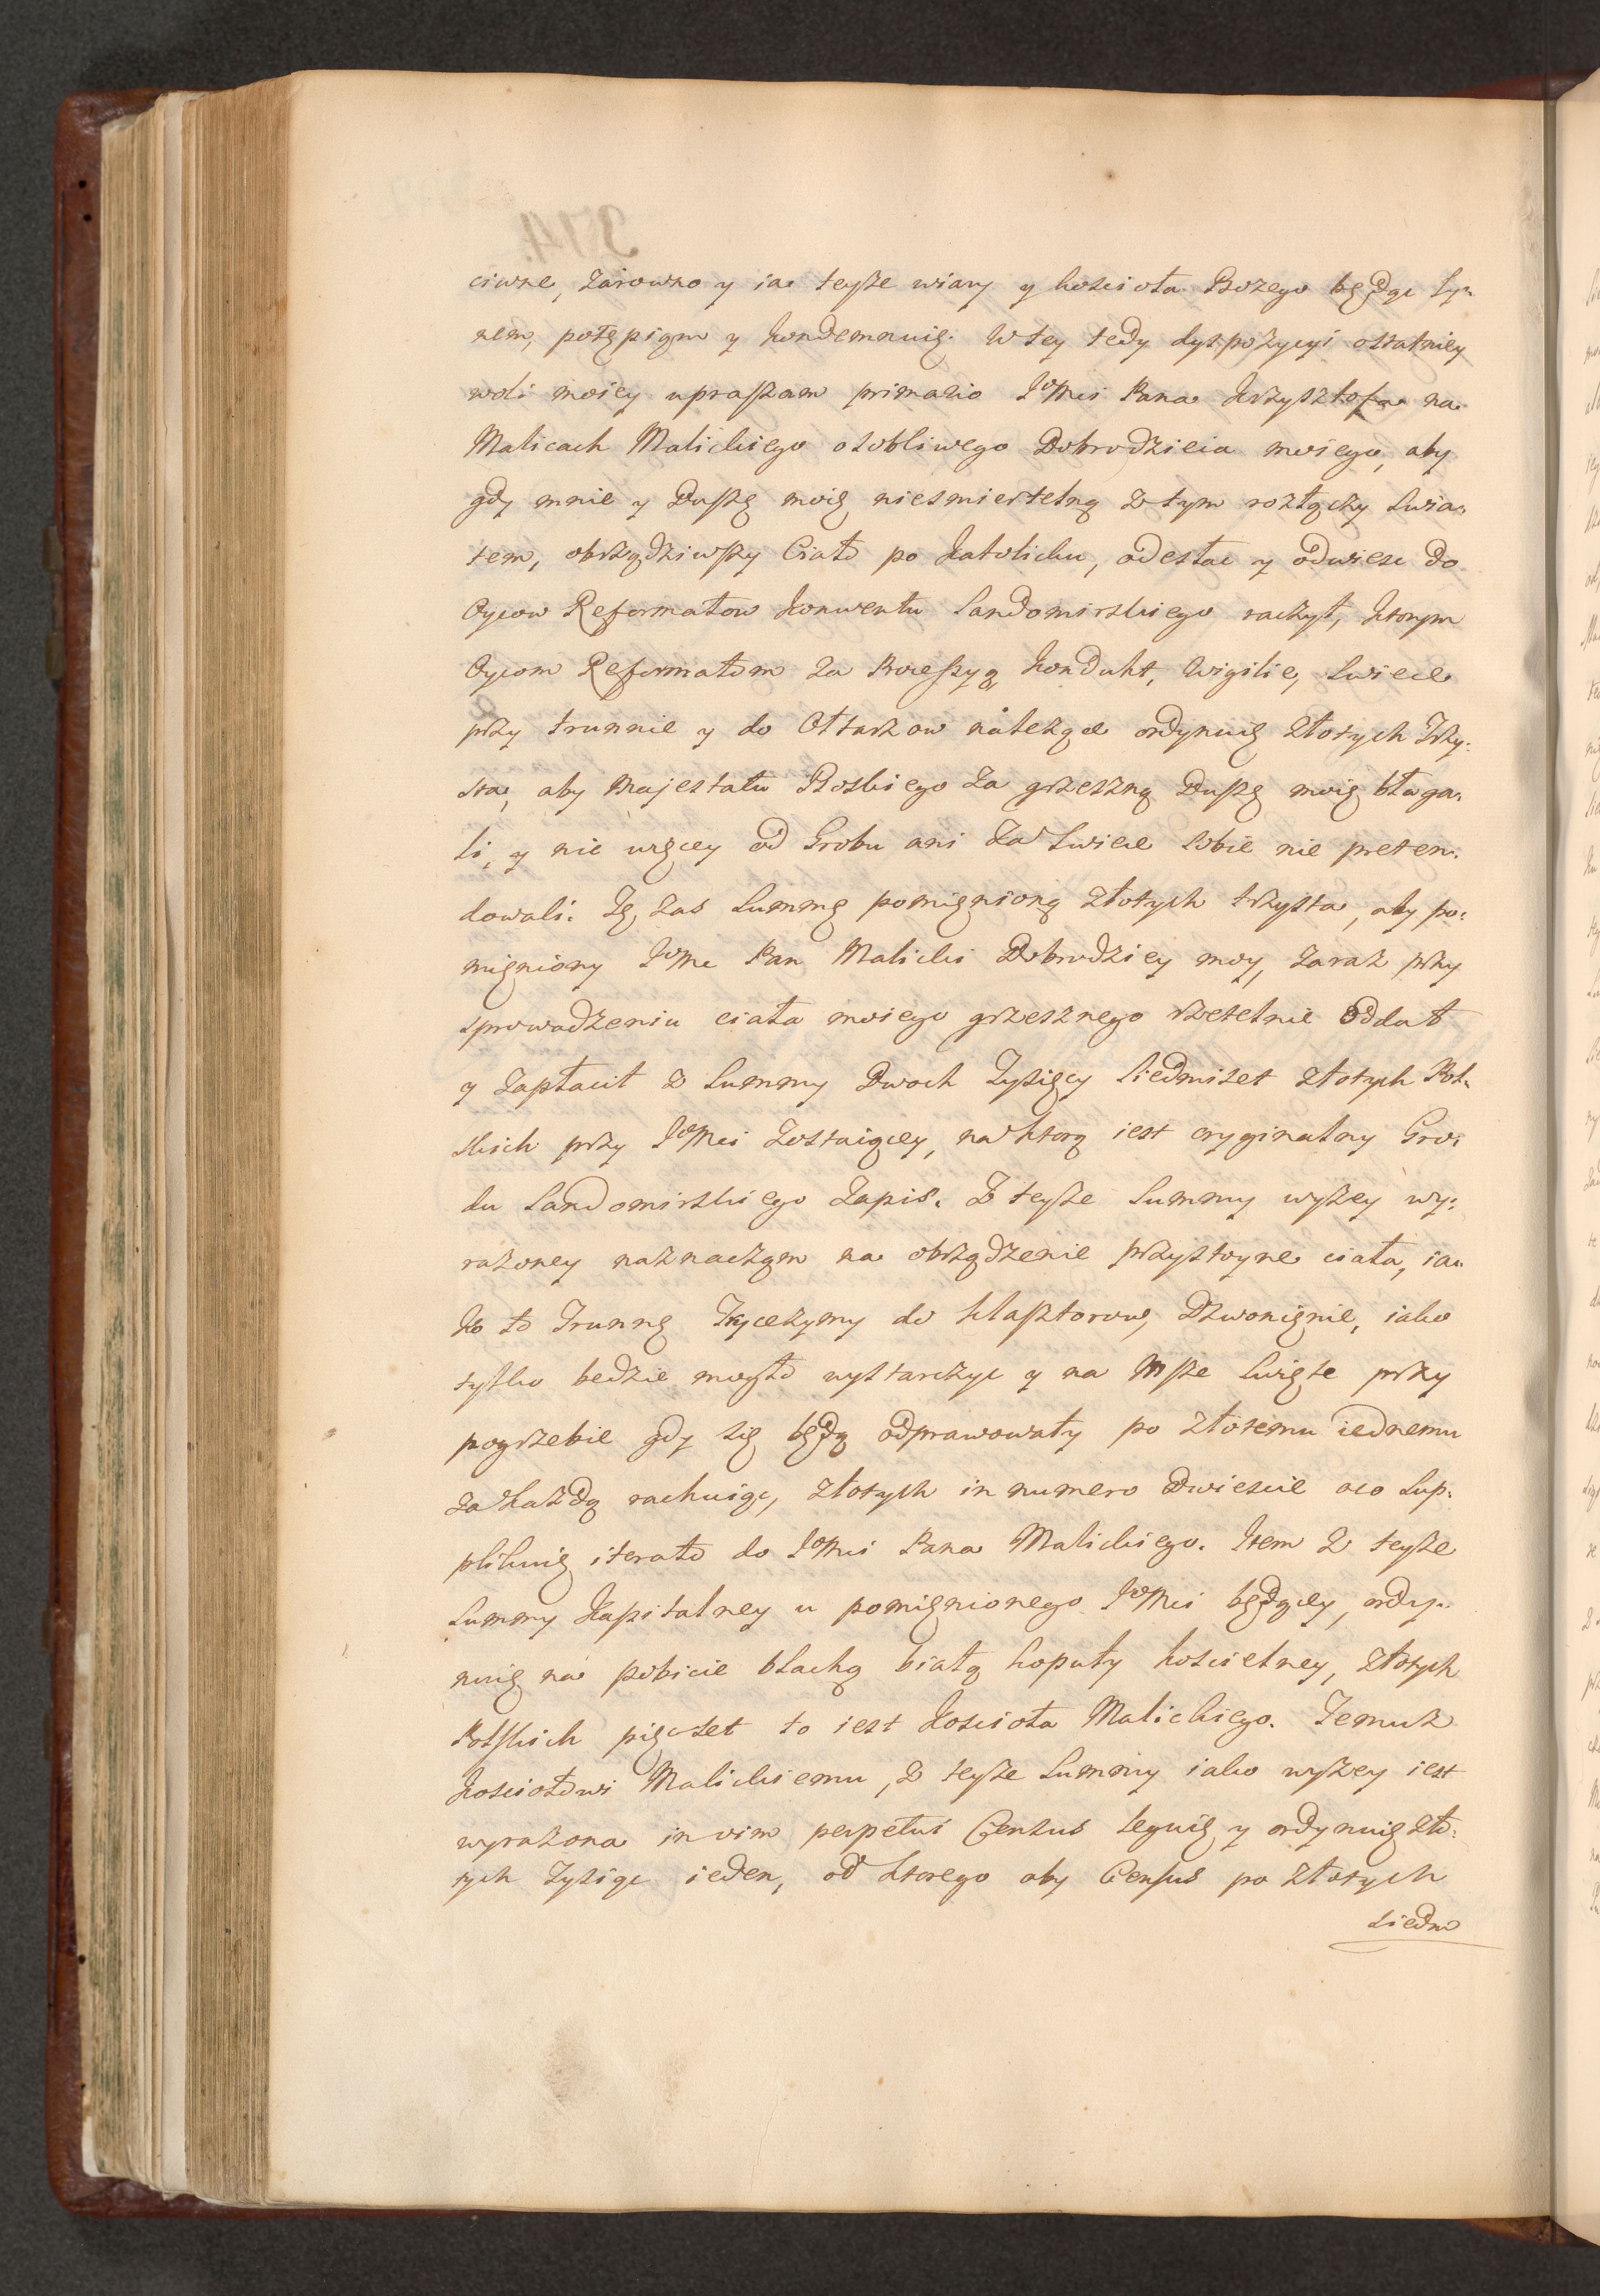 ciwne, zarowno y ia teyże wiary y kościoła Bozego będąc Sy=
nem, potępiąm y kondemnuię. W tey tedy dyspozycyi ostatniey
woli moiey upraszam primario JoMci Pana Krzysztofa na
Malicach Malickiego osobliwego Dobrodzieia moiego, aby
gdy mnie y Duszę moię niesmiertelną z tym rozłączy Swia=
tem, obrządziwszy Ciało po Katolicku, odesłac y odwiesc do
Oycow Reformatow Konwentu Sandomirskiego raczył, ktorym
Oycom Reformatom za Kweszyą Kondukt, Wigilie, Swiece
przy trunnie y do Ołtarzow należące ordynuię złotych Trzy=
sta, aby Majestatu Boskiego za grzeszną Duszę moię błaga=
li, y nic więcey od Grobu ani za Swiece sobie nie preten=
dowali. Tę zas Summę pomięnioną złotych trzysta, aby po=
mięniony JoMc Pan Malicki Dobrodziey moy, zaraz przy
sprowadzeniu ciała moiego grzesznego rzetelnie oddał
y zapłacił z Summy Dwoch Tysięcy Siedmiset złotych Pol=
skich przy JoMci zostaiącey, na ktorą iest oryginalny Gro=
du Sandomirskiego Zapis. Z teyże Summy wyżey wy=
rażoney naznacząm na obrządzenie przystoyne ciała, ia=
ko to Trunnę Tyczymy do klasztorow, Dzwonięnie, iako
tylko bedzie mogło wystarczyc y na Msze Swięte przy
pogrzebie gdy się będą odprawowały po złotemu iednemu
za każdą rachuiąc, złotych in numero Dwiescie oco Sup=
plikuię iterato do JoMci Pana Malickiego. Item z teyże
Summy Kapitalney u pomięnionego JoMci będącey, ordy=
nuię na pobicie blachą białą kopuły koscielney, złotych
Polskich pięcset to iest Kosciola Malickiego. Temuz
Kosciołowi Malickiemu, z teyże Summy iako wyżey iest
wyrażona in vim perpetui Census leguię y ordynuię zło=
tych Tysiąc ieden, od ktorego aby Census po złotych
siedm